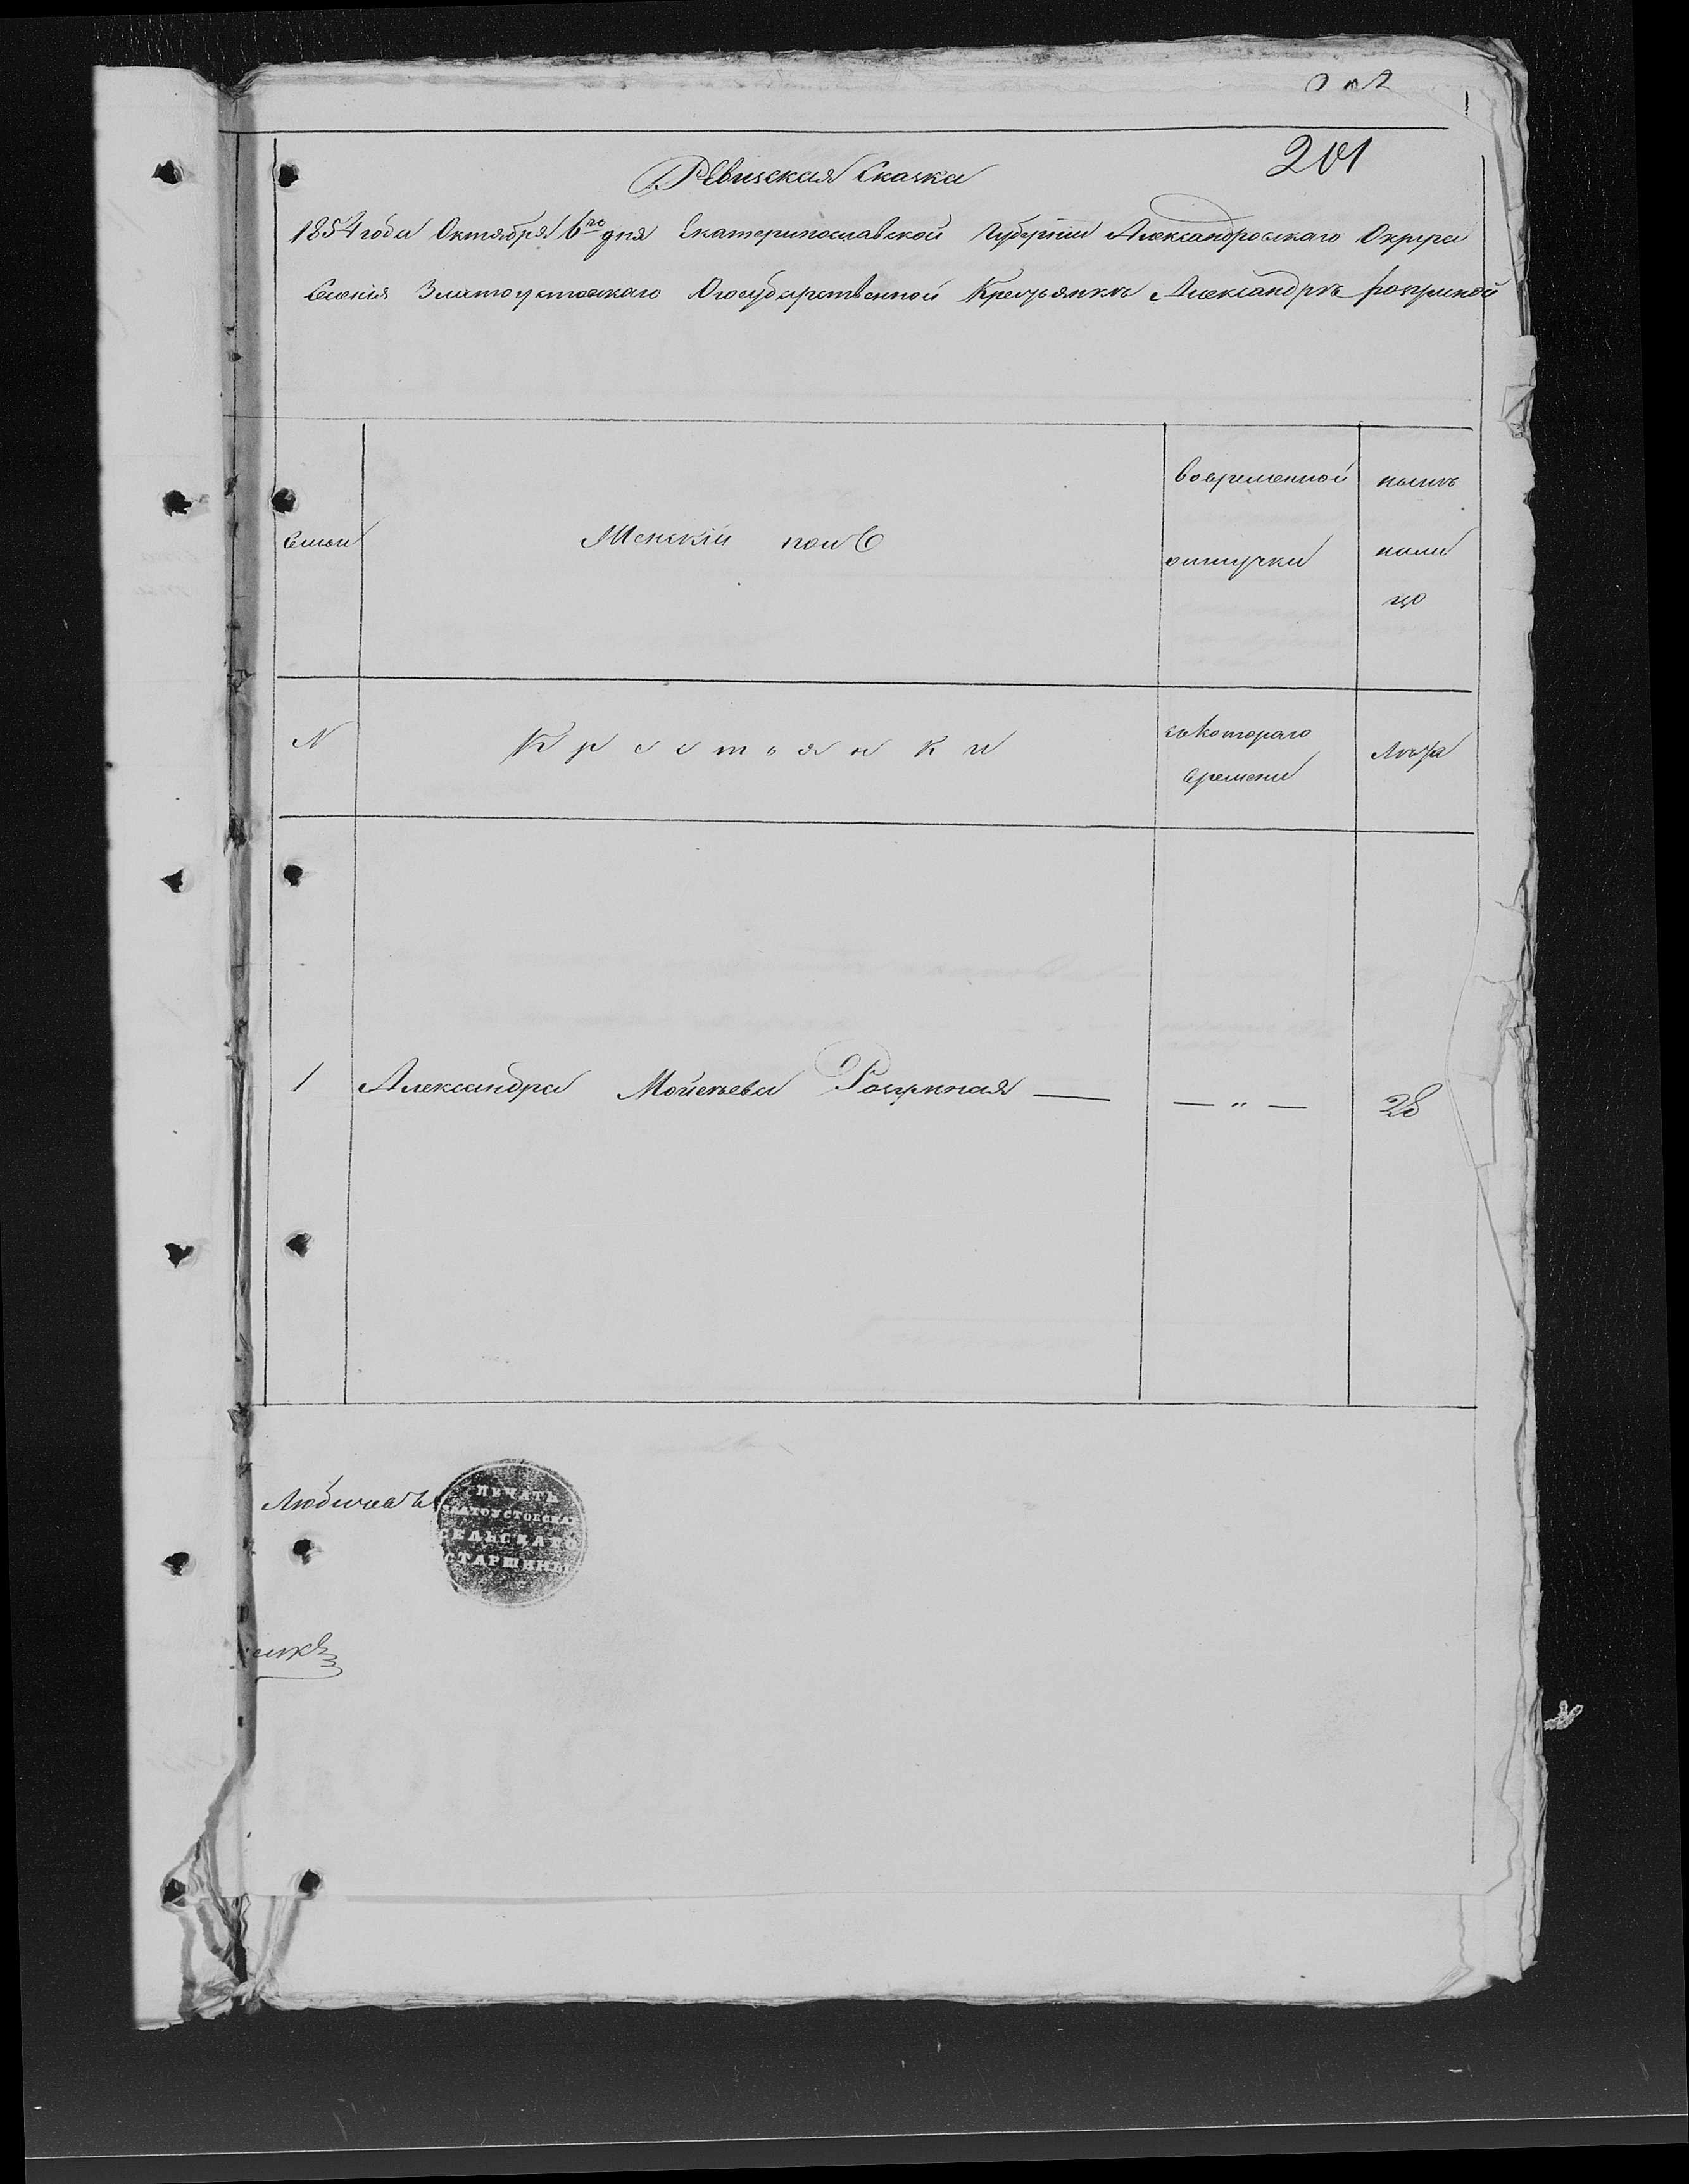 201
Ревизская Сказка
1854 года Октября 6го дня Екатеринославской Губернии Александровскаго Округа
Селенiя Златоустовскаго Огосударственной Крестьянкъ Александръ
Семьи
Женскiй полъ
вовременной
отлучки
нынъ
нали
цо
N
Крестьянки
съкотораго
времени
Лѣта
1 Александра Мойсеева — — „ — 28
ПЕЧАТЬ
ЗЛАТОУСТОВСКА
СЕЛЬСКАГО
СТАРШИНЫ